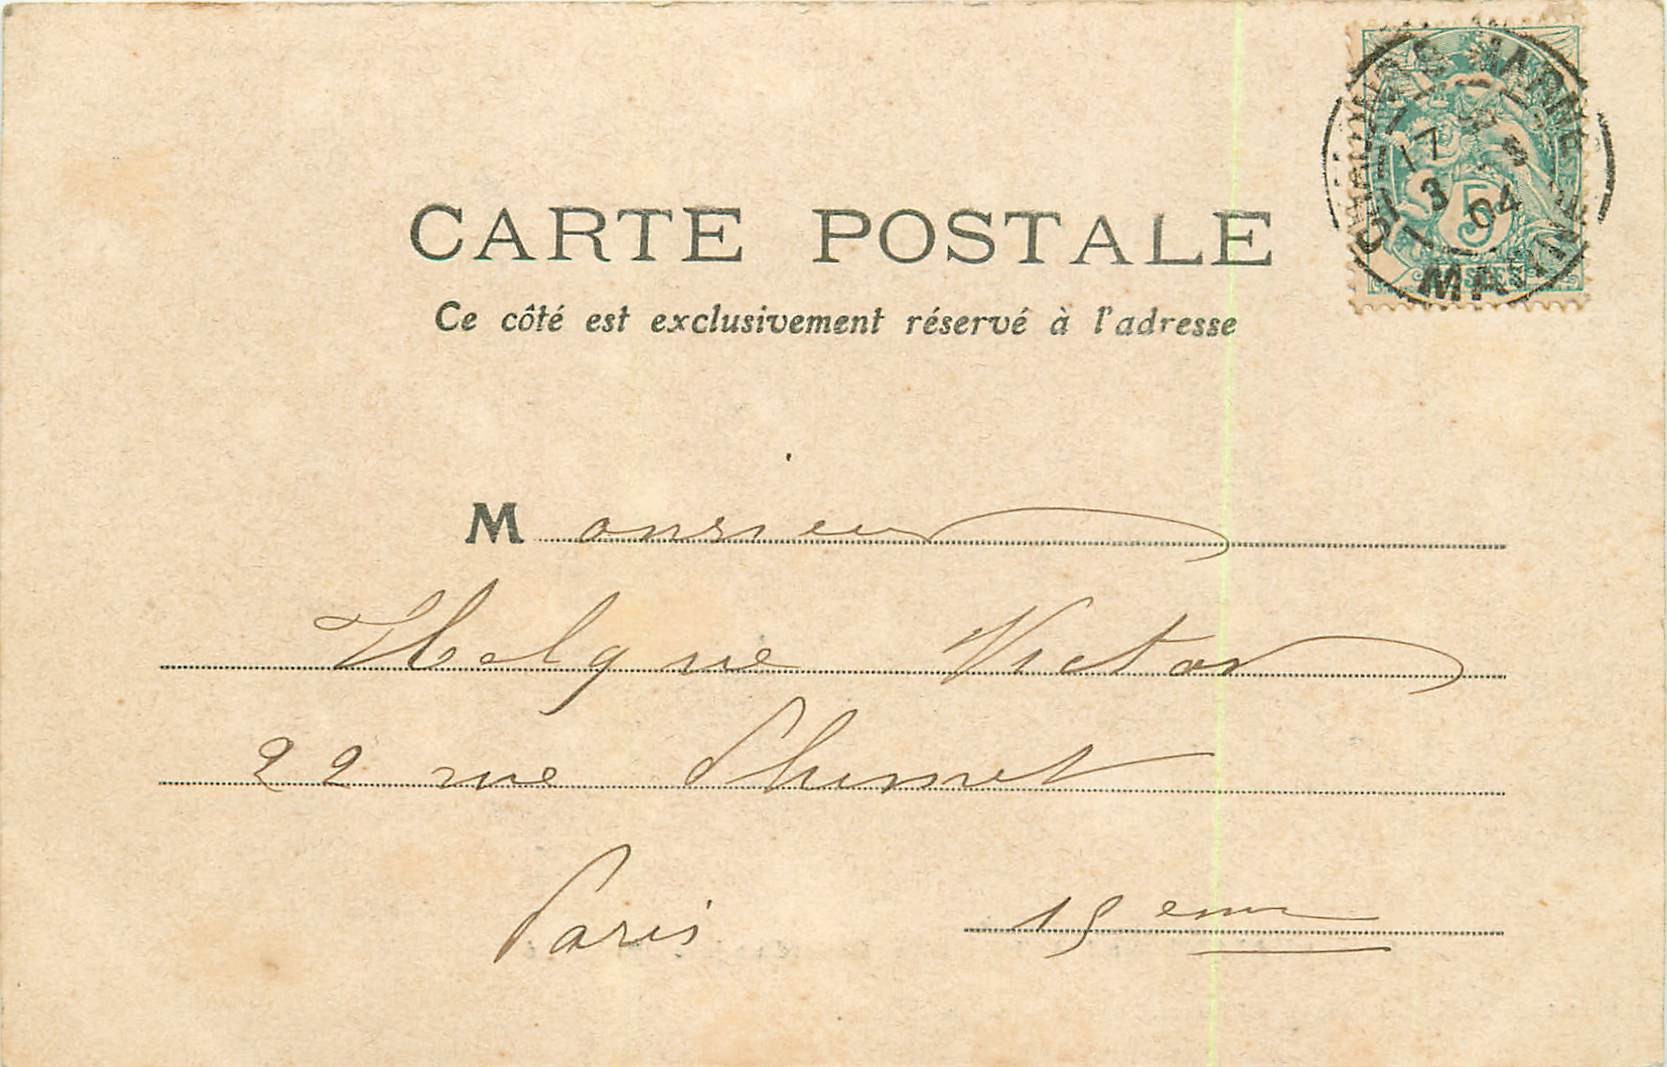 CARTE POSTALE
Ce côté est exclusivement réservé à l'adresse
CHALONS-S-MARNE
17
3 04
MARNE
5
POSTES
Monsieur
Helque Victor
22 rue Plumet
Paris 15 eme